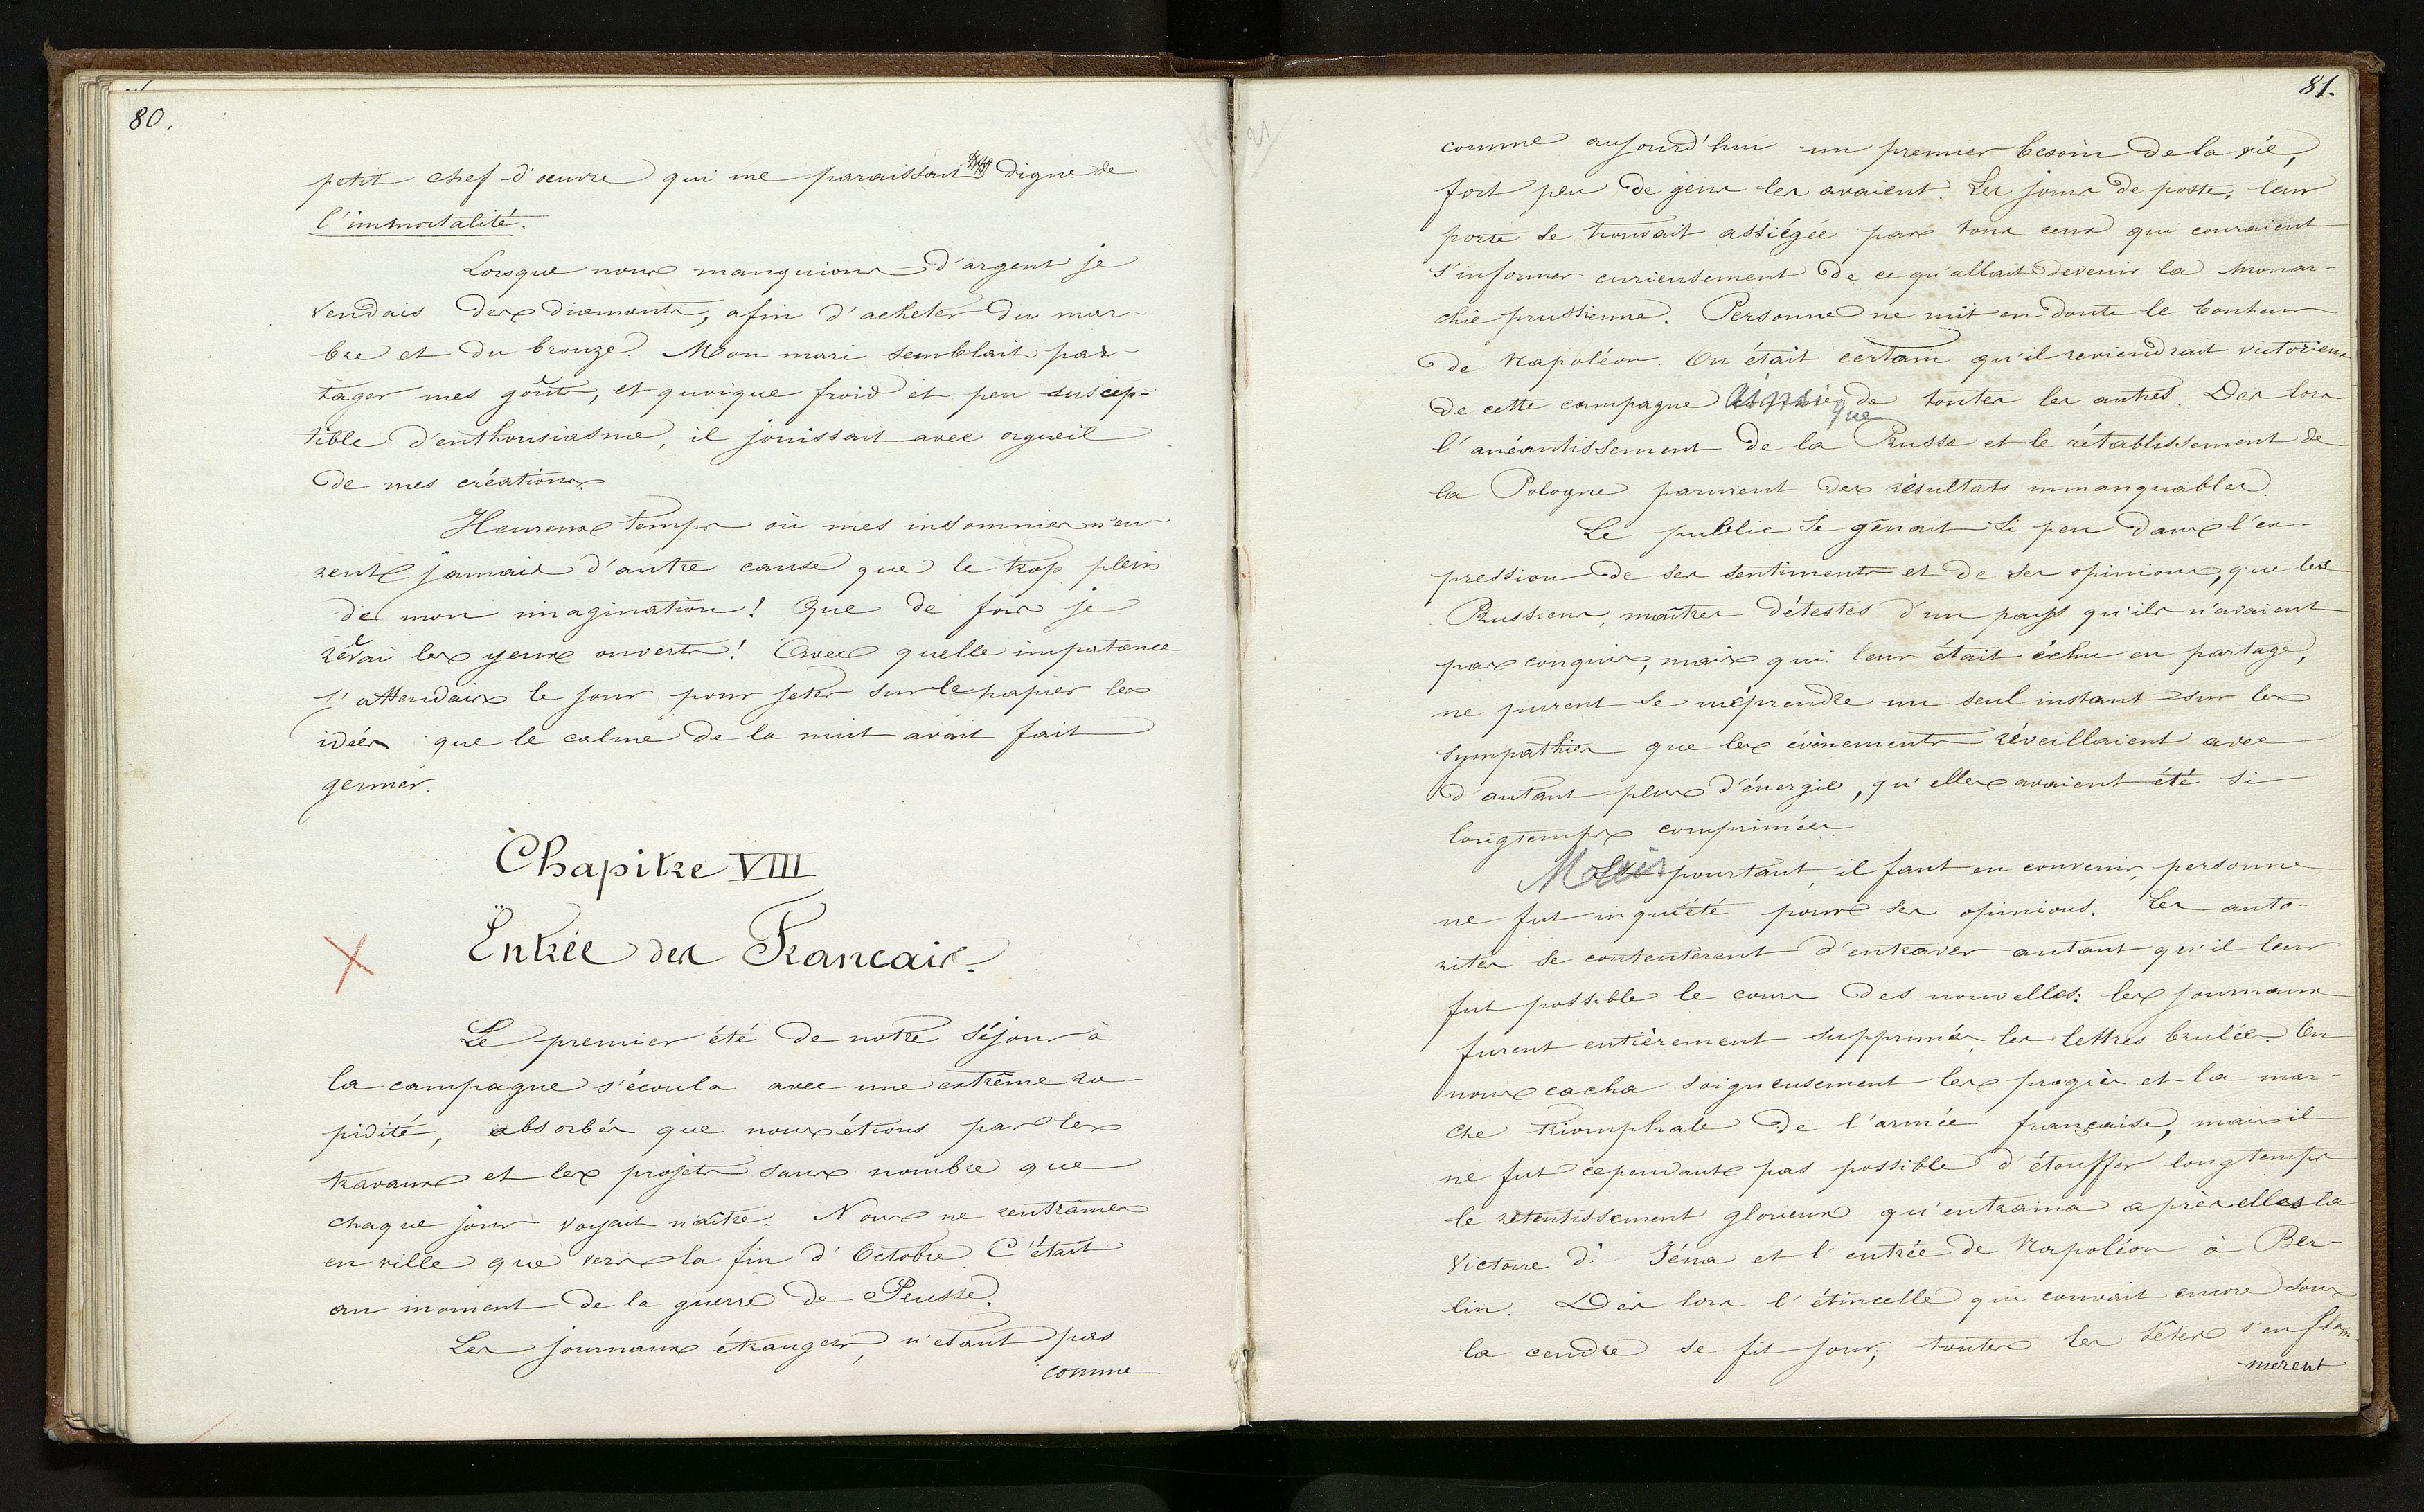 80.
petit chef-d'oeuvre qui me paraissait digne de
l'immortalité.
Lorsque nous manquions d'argent je
vendais des diamants, afin d'acheter du mar-
bre et du bronze. Mon mari semblait par-
tager mes goûts, et quoique froid et peu suscep-
tible d'enthousiasme, il jouissait avec orgueil
de mes créations.
Heureux temps où mes insomnies n'eu-
rent jamais d'autre cause que le trop plein
de mon imagination! Que de fois je
rêvai les yeux ouverts! Avec quelle impatience
j'attendais le jour pour jeter sur le papier les
idées que le calme de la nuit avait fait
germer.
Chapitre VIII
Entrée des Francais.
Le premier été de notre séjour à
la campagne s'écoula avec une extrême ra-
pidité, absorbés que nous étions par les
travaux et les projets sans nombre que
chaque jour voyait naître. Nous ne rentrâmes
en ville que vers la fin d'Octobre. C'était
au moment de la guerre de Prusse.
Les journaux étrangers, n'étant pas
comme
81.
comme aujourd'hui un premier besoin de la vie,
fort peu de gens les avaient. Les jours de poste, leur
porte se trouvait assiégée par tous ceux qui couraient
s'informer curieusement de ce qu'allait devenir la monar-
chie prussienne. Personne ne mit en doute le bonheur
de Napoléon. On était certain qu'il reviendrait victorieux
de cette campagne ainsi que de toutes les autres. Des lors
l'anéantissement de la Prusse et le rétablissement de
la Pologne parurent des résultats immanquables.
Le public se gênait si peu dans l'ex-
pression de ses sentiments et de ses opinions, que les
Prussiens, maîtres détestés d'un pays qu'ils n'avaient
pas conquis, mais qui leur était échu en partage,
ne purent se méprendre un seul instant sur les
sympathies que les évènements réveillaient avec
d'autant plus d'énergie, qu'elles avaient été si
longtemps comprimées.
Mais pourtant, il faut en convenir, personne
ne fut inquiété pour ses opinions. Les auto-
rités se contentèrent d'entraver autant qu'il leur
fut possible le cours des nouvelles: les journaux
furent entièrement supprimés, les lettres brulées. On
nous cacha soigneusement les progrès et la mar-
che triomphale de l'armée française, mais il
ne fut cependant pas possible d'étouffer longtemps
le retentissement glorieux qu'entraina après elles la
victoire d'Iéna et l'entrée de Napoléon à Ber-
lin. Dès lors l'étincelle qui couvait encore sous
la cendre se fit jour; toutes les têtes s'enflam-
merent